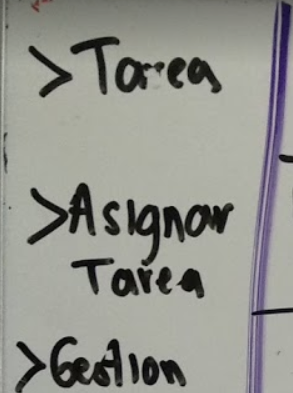 >Tarea
>Asignar
Tarea
>Gestion